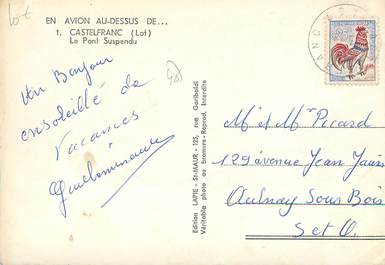 Lot
EN AVION AU-DESSUS DE...
1. CASTELFRANC (Lot)
Le Pont Suspendu
Un Bonjour
ensoleillé de
Vacances
Edition LAPIE - St-MAUR - 125, rue Garibaldi
Véritable photo au bromure - Reprod. Interdite
Mr et Mme Picard
129 avenue Jean Jaurès
Aulnay Sous Bois
S et O.